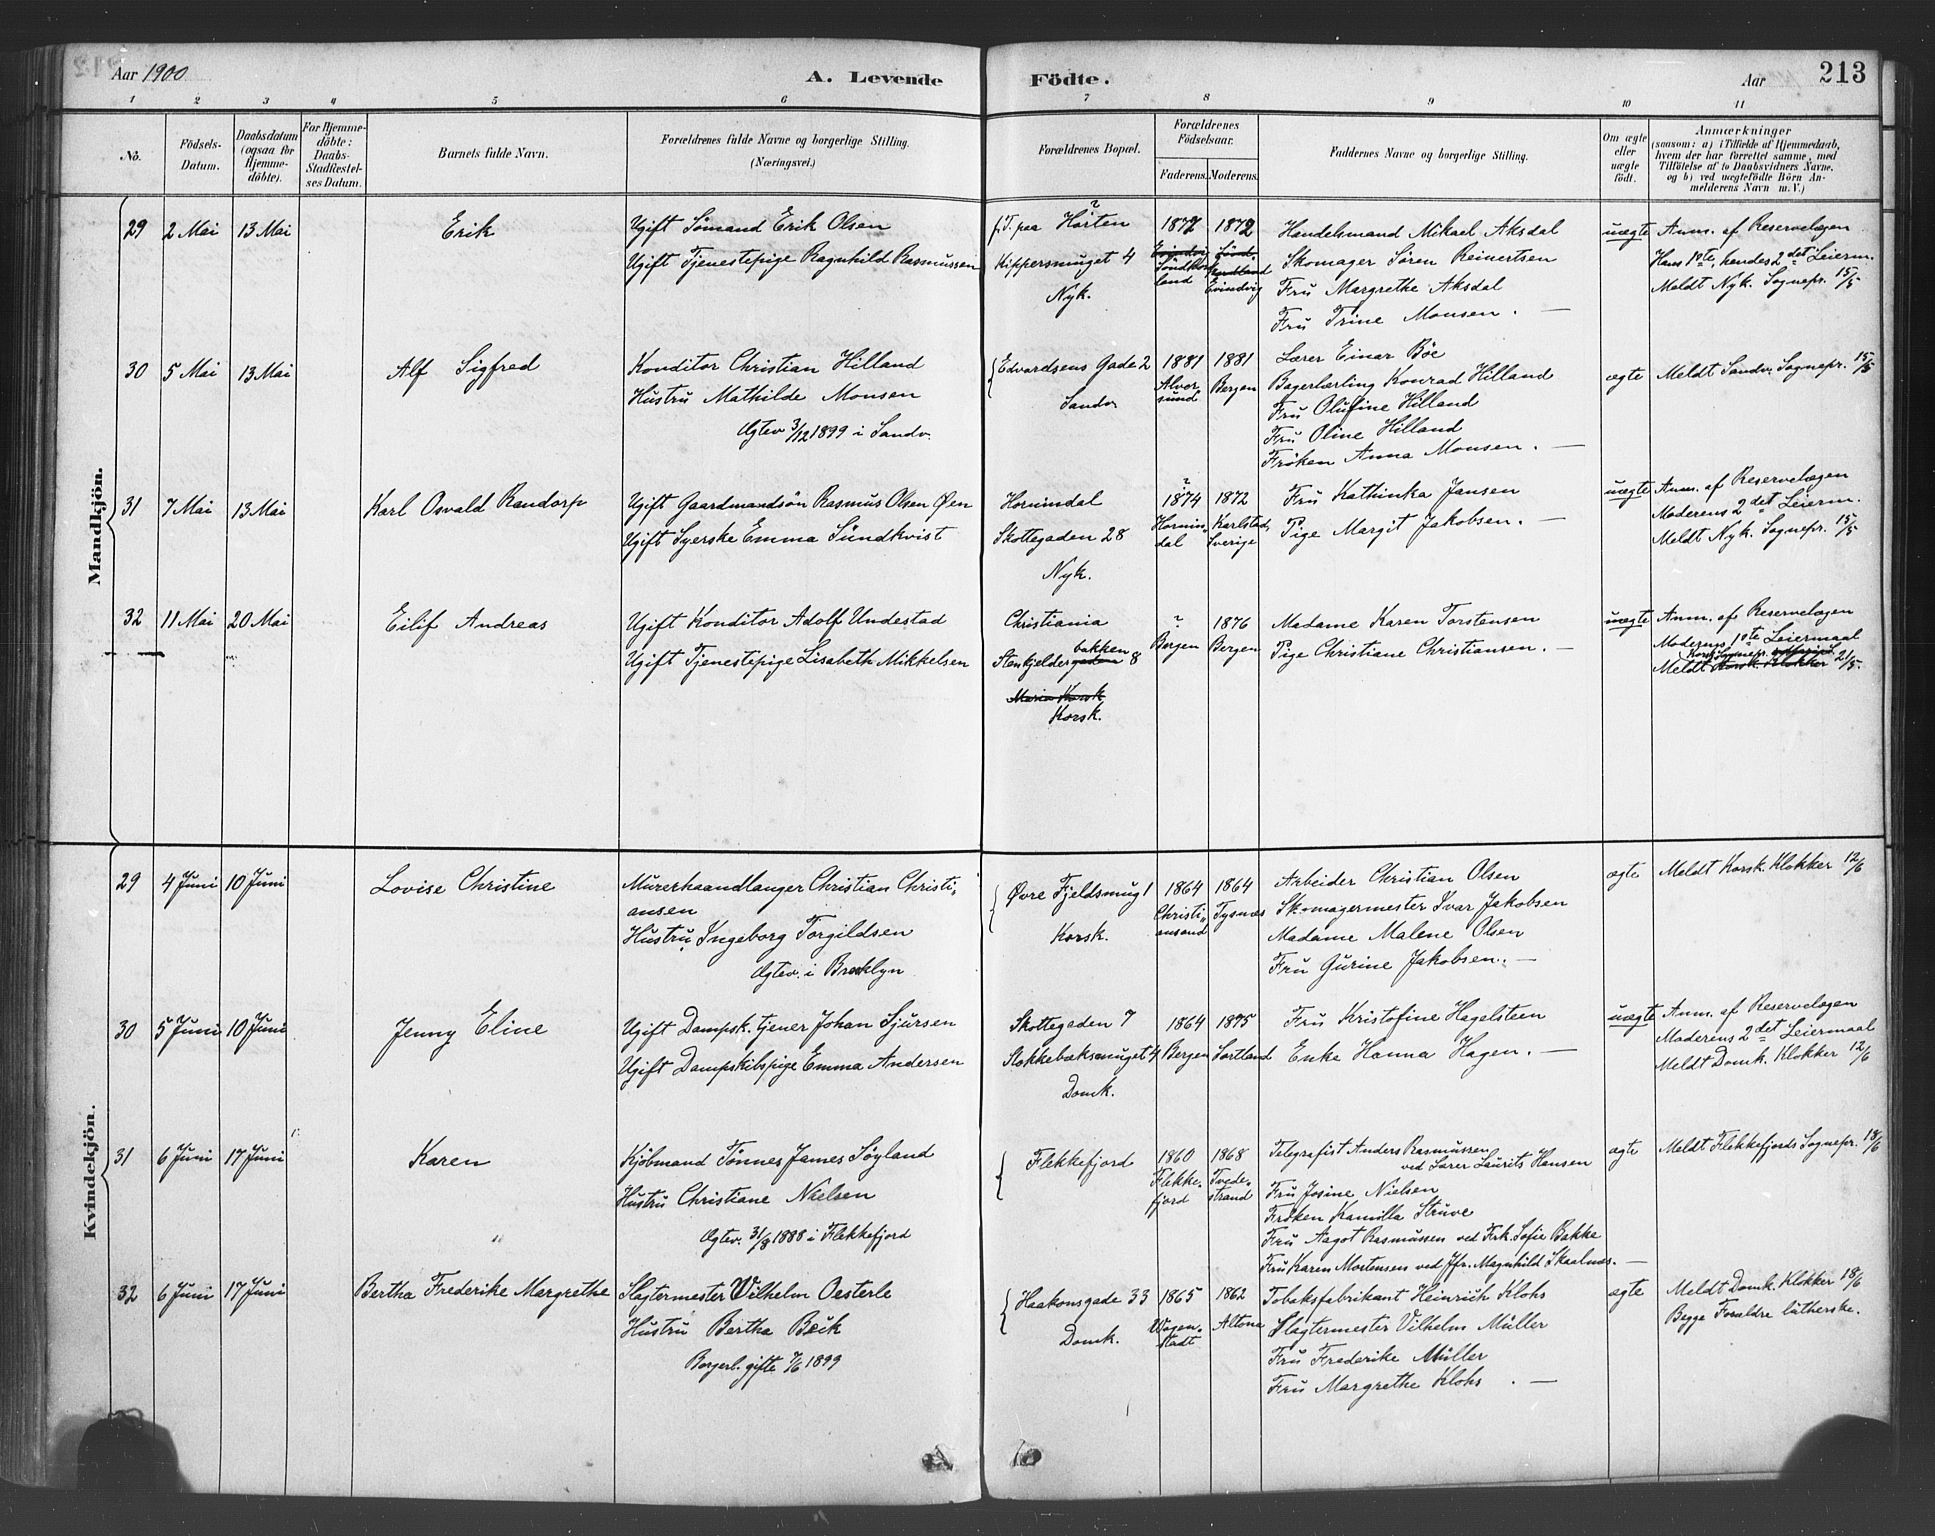 Aar 1900
A. Levende Födte.
Aar
213
1 2 3 4 5 6 7 8 9 10 11
No.
Födsels-Datum.
Daabsdatum (ogsaa for Hjemme-döbte).
For Hjemme-döbte: Daabs-Stadfæstel-ses Datum.
Barnets fulde Navn.
Forældrenes fulde Navne og borgerlige Stilling. (Næringsvei.)
Forældrenes Bopæl.
Forældrenes Födselsaar.
Faderens. Moderens.
Faddernes Navne og borgerlige Stilling.
Om ægte eller uægte födt.
Anmærkninger
(saasom: a) i Tilfælde af Hjemmedaab, hvem der har forrettet samme, med Tilföielse af to Daabsvidners Navne, og b) ved uægtefödte Börn An-melderens Navn m. V.)
Mandkjön.
29 2 Mai 13 Mai
Erik
Ugift Sømand Erik Olsen
Ugift Tjenestepige Ragnhild Rasmussen
f. T. paa Horten ?
Kippersmuget 4
Nyk.
1872
Söndhordland
1872
Evindvig
Handelsmand Mikael Aksdal
Skomager Søren Reinertsen
Fru Margrethe Aksdal
Fru Trine Monsen. —
uægte
Anm. af Reservelægen
Hans 1ste, hendes 2det Leierm.
Meldt Nyk. Sognepr. 15/5
30 5 Mai 13 Mai
Alf Sigfred
Konditor Christian Hilland
Hustru Mathilde Monsen
Ægtev. 3/12 1899 i Sandv.
Edvardsens Gade 2
Sandv.
1881
Alversund
1881
Bergen
Lærer Einar Bøe
Bagerlærling Konrad Hilland
Fru Olufine Hilland
Fru Oline Hilland
Frøken Anna Monsen. —
ægte
Meldt Sandv. Sognepr. 15/5
31 7 Mai 13 Mai
Karl Osvald Randorp
Ugift Gaardmandsön Rasmus Olsen Øen
Ugift Syerske Emma Sündkvist
Hornindal
Skottegaden 28
Nyk.
?
1874
Hornindal
1872
Karlstad, Sverige
Fru Kathinka Jansen
Pige Margit Jakobsen. —
uægte
Anm. af Reservelægen
Moderens 2det Leierm.
Meldt Nyk. Sognepr. 15/5
32 11 Mai 20 Mai
Eilif Andreas
Ugift Konditor Adolf Undestad
Ugift Tjenestepige Lisabeth Mikkelsen
Christiania
bakken
Stenkjeldergaden 8
Maria Korsk
Korsk.
?
Bergen
1876
Bergen
Madame Karen Torstensen
Pige Christiane Christiansen. —
uægte
Anm. af Reservelægen
Moderens 1ste Leiermaal
Meldt Korsk. Klokker 21/5.
Kvindekjön.
29 4 Juni 10 Juni
Lovise Christine
Murerhaandlanger Christian Christi-
ansen
Hustru Ingeborg Torgildsen
Ægtev. i Brooklyn
Øvre Fjeldsmug 1
Korsk.
1864
Christiansand
1864
Tysnæs
Arbeider Christian Olsen
Skomagermester Ivar Jakobsen
Madame Malene Olsen
Fru Gurine Jakobsen. —
ægte
Meldt Korsk. Klokker 12/6
30 5 Juni 10 Juni
Jenny Eline
Ugift Dampsk. tjener Johan Sjursen
Ugift Dampskibspige Emma Andersen
Skottegaden 7
Stokkebæksmuget 4
Domk.
1864
Bergen
1875
Sortland
Fru Kristofine Hagelsteen
Enke Hanna Hagen. —
uægte
Anm. af Reservelægen
Moderens 2det Leiermaal
Meldt Domk. Klokker 12/6
31 6 Juni 17 Juni
Karen
Kjöbmand Tønnes James Søyland
Hustru Christiane Nielsen
Ægtev. 31/8 1888 i Flekkefjord
Flekkefjord
1860
Flekkefjord
1868
Tvedestrand
Telegrafist Anders Rasmussen
ved Lærer Laurits Hansen
Fru Josine Nielsen
Frøken Kamilla Struve
Fru Aagot Rasmussen ved Frk. Sofie Bakke
Fru Karen Mortensen ved Jfr. Magnhild Skaalnæs. —
ægte
Meldt Flekkefjords Sognepr. 18/6
32 6 Juni 17 Juni
Bertha Frederike Margrethe
Slagtermester Wilhelm Oesterle
Hustru Bertha Beik
Borgerl. gifte 7/6 1899
Haakonsgade 33
Domk.
1865
1862
Altona
Tobaksfabrikant Heinrich Klohs
Slagtermester Vilhelm Müller
Fru Frederike Müller
Fru Margrethe Klohs. —
ægte
Meldt Domk. Klokker 18/6
Begge Forældre lutherske.